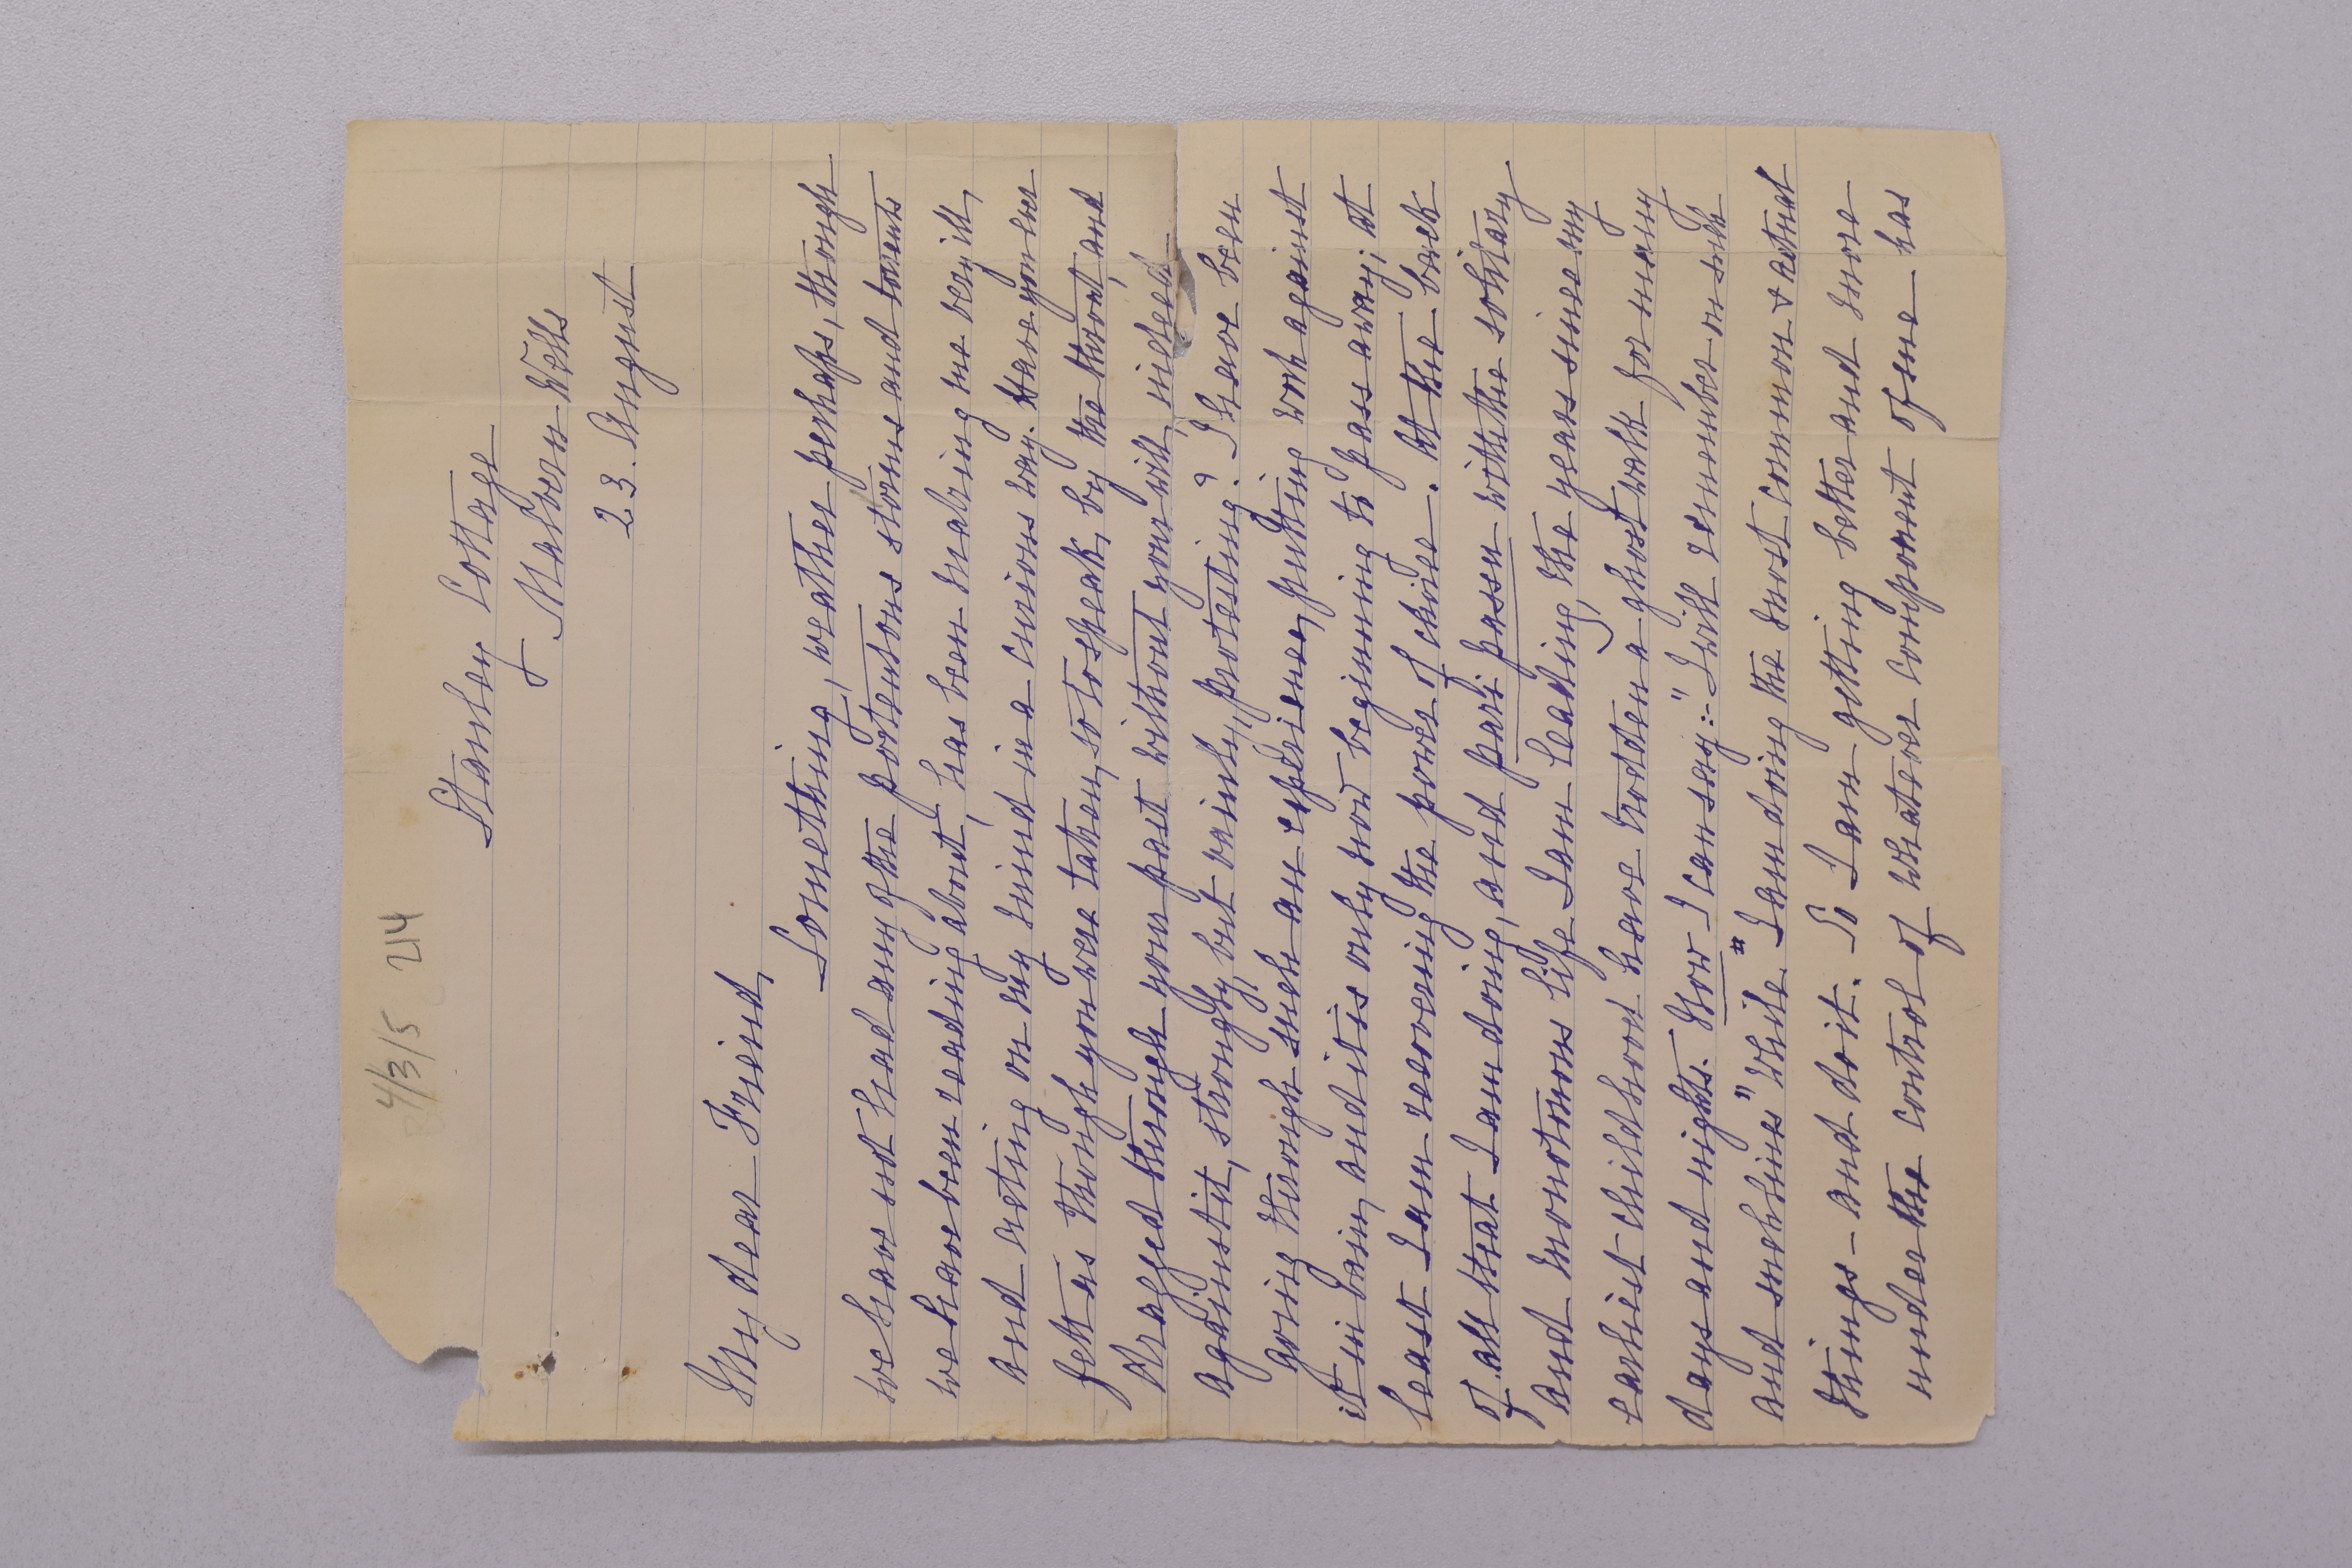 4/3/5 214
Stanley Cottage
Malvern Wells
23. August
My dear Friend,
Something, weather perhaps, though
we have not had any of the portentous storms and torrents
we have been reading about, has been making me very ill,
and acting on my mind in a curious way. Have you ever
felt as though you were taken, so to speak, by the throat, and
dragged through your past without your will, indeed
against it, strongly, but vainly, protesting? I have been
going through such an experience, putting work against
it in vain, and it is only now beginning to pass away; at
least I am recovering the power of choice. At the back
of all that I am doing, and pari passu with the solitary
and monotonous life I am leading, the years since my
earliest childhood have trodden a ghost walk for many
days and nights. Now I can say:- "I will remember on such
and such lines" while I am doing the most common & actual
things - and do it. So I am getting better and more
under the control of whatever component of me has